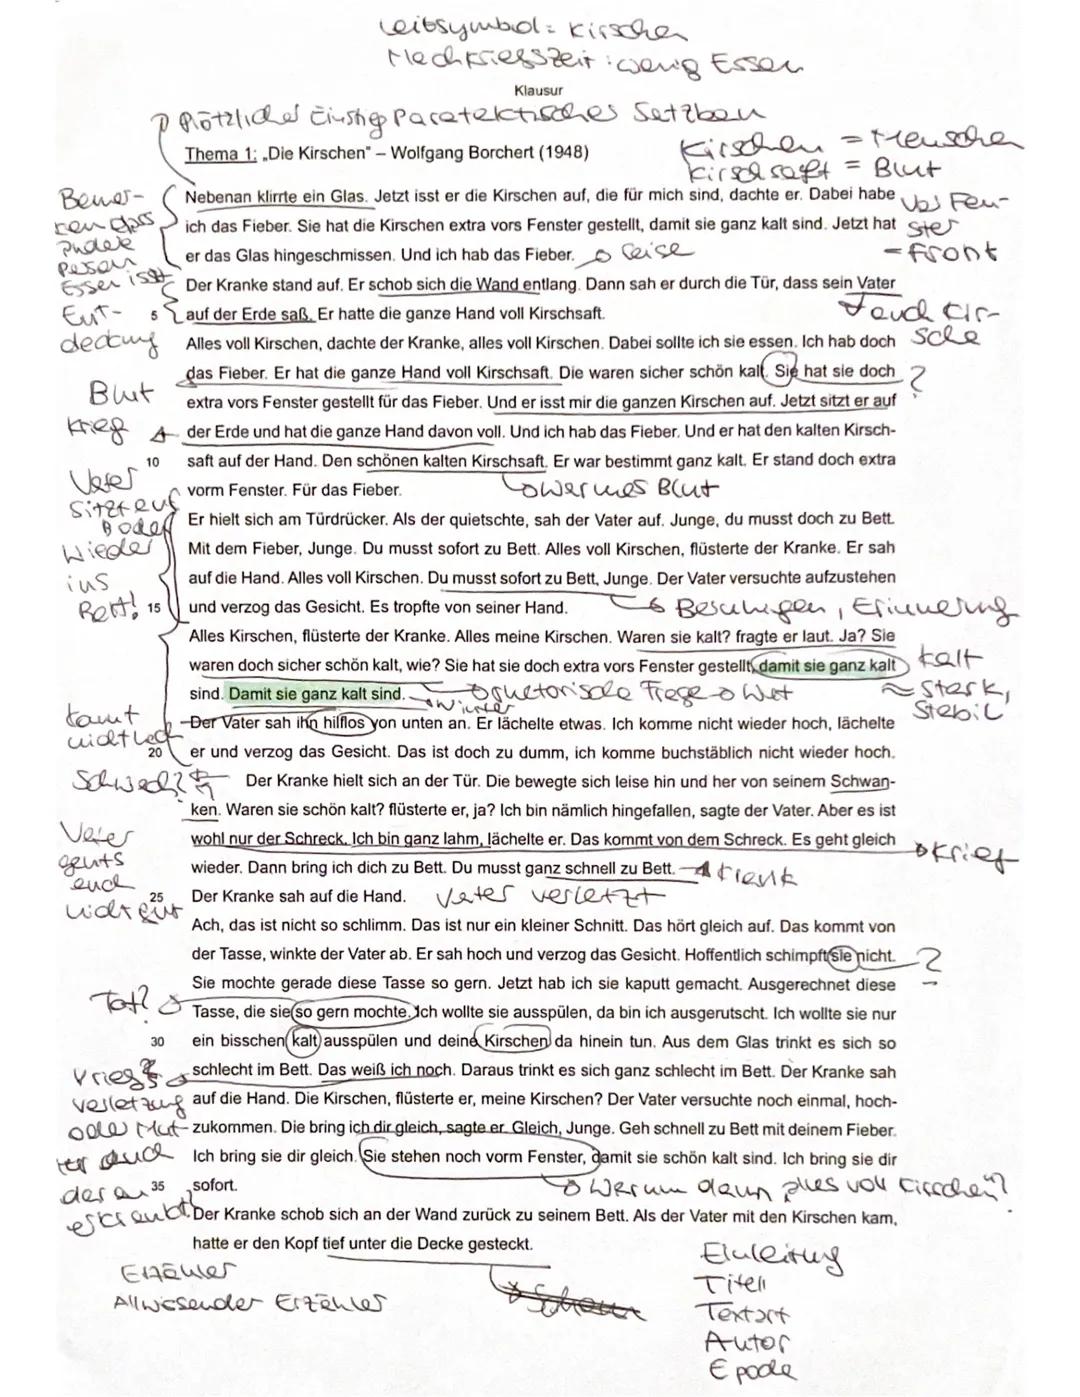 Leitsymbol: Kirschen
Nachkriegszeit: wenig Essen
Klausur
Plötzlicher Einstieg Paratektisches Satzbau
Thema 1: „Die Kirschen" – Wolfgang Borchert (1948)
Kirschen = Menschen
Kirschsaft = Blut
Nebenan klirrte ein Glas. Jetzt isst er die Kirschen auf, die für mich sind, dachte er. Dabei habe
ich das Fieber. Sie hat die Kirschen extra vors Fenster gestellt, damit sie ganz kalt sind. Jetzt hat
er das Glas hingeschmissen. Und ich hab das Fieber.
leise
Vors Fen-
ster
= Front
Der Kranke stand auf. Er schob sich die Wand entlang. Dann sah er durch die Tür, dass sein Vater
5 auf der Erde saß. Er hatte die ganze Hand voll Kirschsaft.
Ent-
deckung
auch Kir-
sche
Alles voll Kirschen, dachte der Kranke, alles voll Kirschen. Dabei sollte ich sie essen. Ich hab doch
das Fieber. Er hat die ganze Hand voll Kirschsaft. Die waren sicher schön kalt. Sie hat sie doch ?
extra vors Fenster gestellt für das Fieber. Und er isst mir die ganzen Kirschen auf. Jetzt sitzt er auf
Blut
Krieg
der Erde und hat die ganze Hand davon voll. Und ich hab das Fieber. Und er hat den kalten Kirsch-
10 saft auf der Hand. Den schönen kalten Kirschsaft. Er war bestimmt ganz kalt. Er stand doch extra
vorm Fenster. Für das Fieber.
warmes Blut
Vater
sitzt auf
Boden
Wieder
ins
Bett!
Er hielt sich am Türdrücker. Als der quietschte, sah der Vater auf. Junge, du musst doch zu Bett.
Mit dem Fieber, Junge. Du musst sofort zu Bett. Alles voll Kirschen, flüsterte der Kranke. Er sah
auf die Hand. Alles voll Kirschen. Du musst sofort zu Bett, Junge. Der Vater versuchte aufzustehen
15 und verzog das Gesicht. Es tropfte von seiner Hand.
Erinnerung
Alles Kirschen, flüsterte der Kranke. Alles meine Kirschen. Waren sie kalt? fragte er laut. Ja? Sie
waren doch sicher schön kalt, wie? Sie hat sie doch extra vors Fenster gestellt, damit sie ganz kalt
sind. Damit sie ganz kalt sind.
rhetorische Frage
Winter
kalt
≈ stark,
stabil
Der Vater sah ihn hilflos von unten an. Er lächelte etwas. Ich komme nicht wieder hoch, lächelte
20 er und verzog das Gesicht. Das ist doch zu dumm, ich komme buchstäblich nicht wieder hoch.
kommt
nicht hoch
Schwach?
Der Kranke hielt sich an der Tür. Die bewegte sich leise hin und her von seinem Schwan-
ken. Waren sie schön kalt? flüsterte er, ja? Ich bin nämlich hingefallen, sagte der Vater. Aber es ist
wohl nur der Schreck. Ich bin ganz lahm, lächelte er. Das kommt von dem Schreck. Es geht gleich
wieder. Dann bring ich dich zu Bett. Du musst ganz schnell zu Bett.
Krieg
krank
Vater
gehts
auch
nicht gut
25 Der Kranke sah auf die Hand.
Vater verletzt
Ach, das ist nicht so schlimm. Das ist nur ein kleiner Schnitt. Das hört gleich auf. Das kommt von
der Tasse, winkte der Vater ab. Er sah hoch und verzog das Gesicht. Hoffentlich schimpft sie nicht. ?
Sie mochte gerade diese Tasse so gern. Jetzt hab ich sie kaputt gemacht. Ausgerechnet diese
Tot?
Tasse, die sie so gern mochte. Ich wollte sie ausspülen, da bin ich ausgerutscht. Ich wollte sie nur
30 ein bisschen kalt ausspülen und deine Kirschen da hinein tun. Aus dem Glas trinkt es sich so
schlecht im Bett. Das weiß ich noch. Daraus trinkt es sich ganz schlecht im Bett. Der Kranke sah
auf die Hand. Die Kirschen, flüsterte er, meine Kirschen? Der Vater versuchte noch einmal, hoch-
zukommen. Die bring ich dir gleich, sagte er. Gleich, Junge. Geh schnell zu Bett mit deinem Fieber.
Ich bring sie dir gleich. Sie stehen noch vorm Fenster, damit sie schön kalt sind. Ich bring sie dir
35 sofort.
verletzung
oder Mut-
ter auch
daran
erkrankt
Warum dann alles voll Kirschen"?
Der Kranke schob sich an der Wand zurück zu seinem Bett. Als der Vater mit den Kirschen kam,
hatte er den Kopf tief unter die Decke gesteckt.
Erzähler
Allwissender Erzähler
Einleitung
Titel
Textart
Autor
Epode